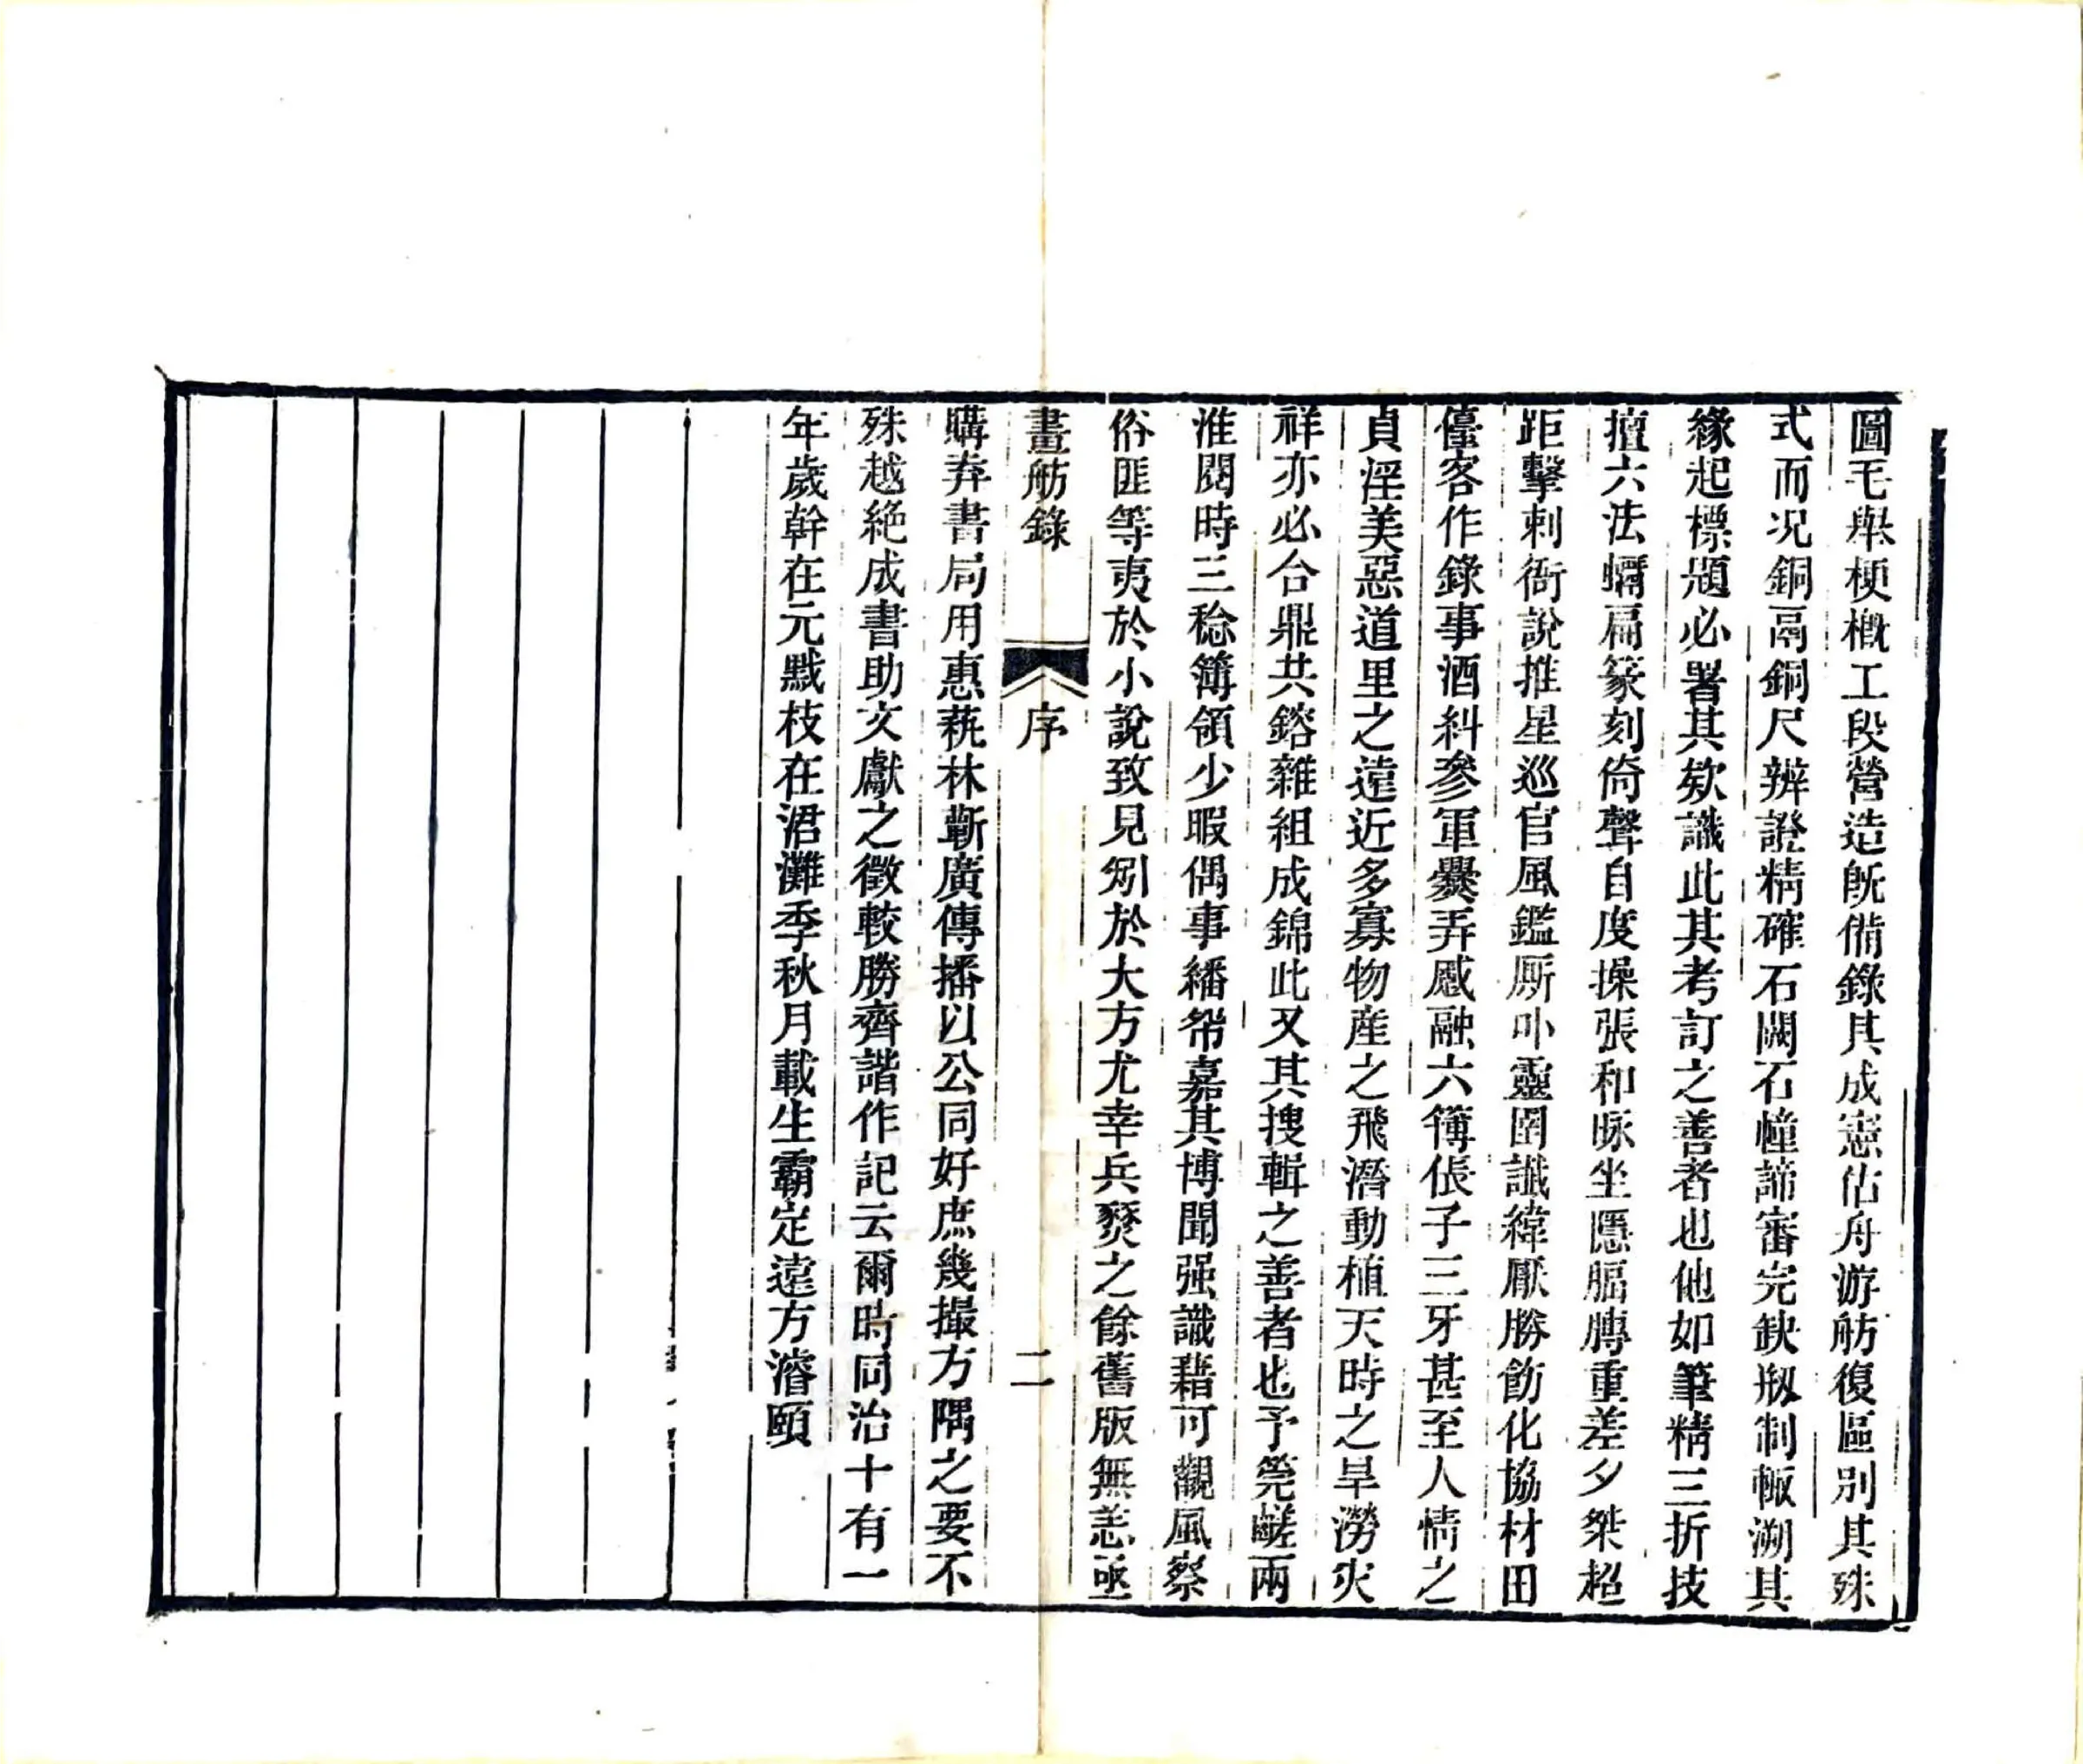 圖毛舉梗概工段營造既備錄其成憲估舟游舫復區別其殊
式而况銅鬲銅尺辨證精確石闕石幢諦審完缺剏制輒溯其
緣起標題必署其欵識此其考訂之善者也他如筆精三折技
擅六法螭扁篆刻倚聲自度操張和咏坐隱腷膊重差夕桀超
距擊刺衙說推星巡官風鑑厮卟靈圉讖緯厭勝飭化協材田
僮客作錄事酒糾參軍爨弄感融六簿倀子三牙甚至人情之
貞淫美惡道里之遠近多寡物産之飛潛動植天時之旱澇灾
祥亦必合鼎共鎔雜組成錦此又其搜輯之善者也予筦鹺兩
淮閱時三稔簿領少暇偶事繙帋嘉其博聞强識藉可觀風察
俗匪等夷於小說致見刎於大方尤幸兵燹之餘舊版無恙亟
畫舫錄 序 二
購弆書局用惠蓺林蘄廣傳播以公同好庶幾撮方隅之要不
殊越絕成書助文獻之徵較勝齊諧作記云爾時同治十有一
年歲幹在元黓枝在涒灘季秋月載生霸定遠方濬頤